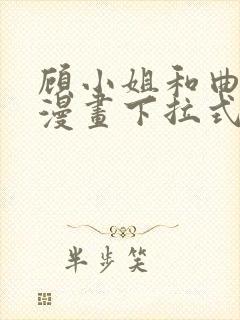 顾小姐和曲
漫畫下拉式
半步笑